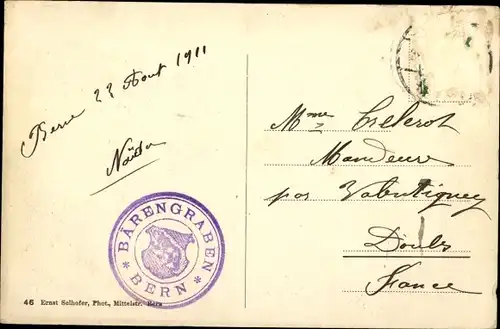 Berne 22 Aout 1911
Naïda
BÄRENGRABEN
* BERN *
46 Ernst Selhofer, Phot., Mittelstr. Bern
Mme
Mandeure
par Valentigney
Doubs
France